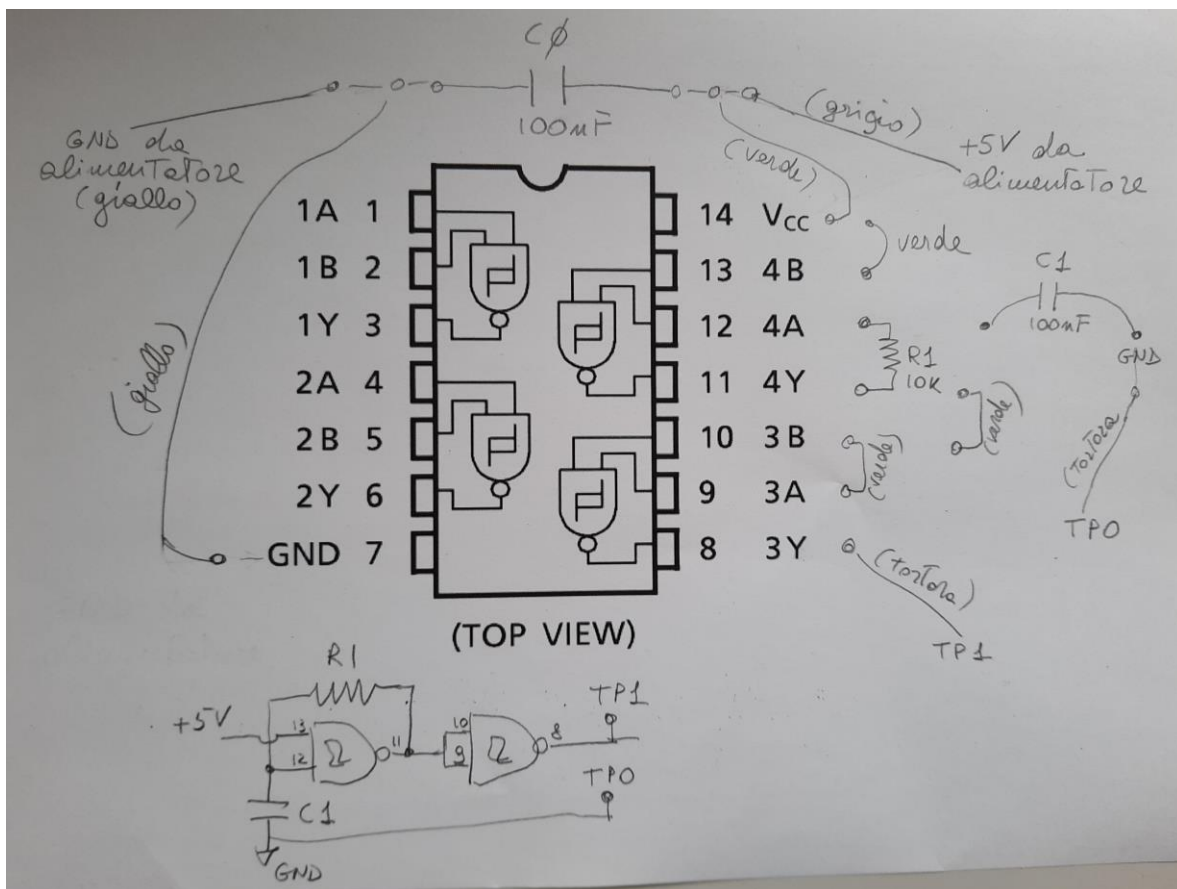 CØ
100nF
GND da
alimentatore
(giallo)
(grigio)
+5V da
alimentatore
(verde)
(giallo)
1A 1
1B 2
1Y 3
2A 4
2B 5
2Y 6
GND 7
14 VCC
13 4B
12 4A
11 4Y
10 3B
9 3A
8 3Y
verde
C1
100nF
GND
R1
10K
(verde)
(verde)
(tortora)
TP0
(tortora)
TP1
(TOP VIEW)
R1
+5V
13
12
11
10
9
8
TP1
TP0
C1
GND